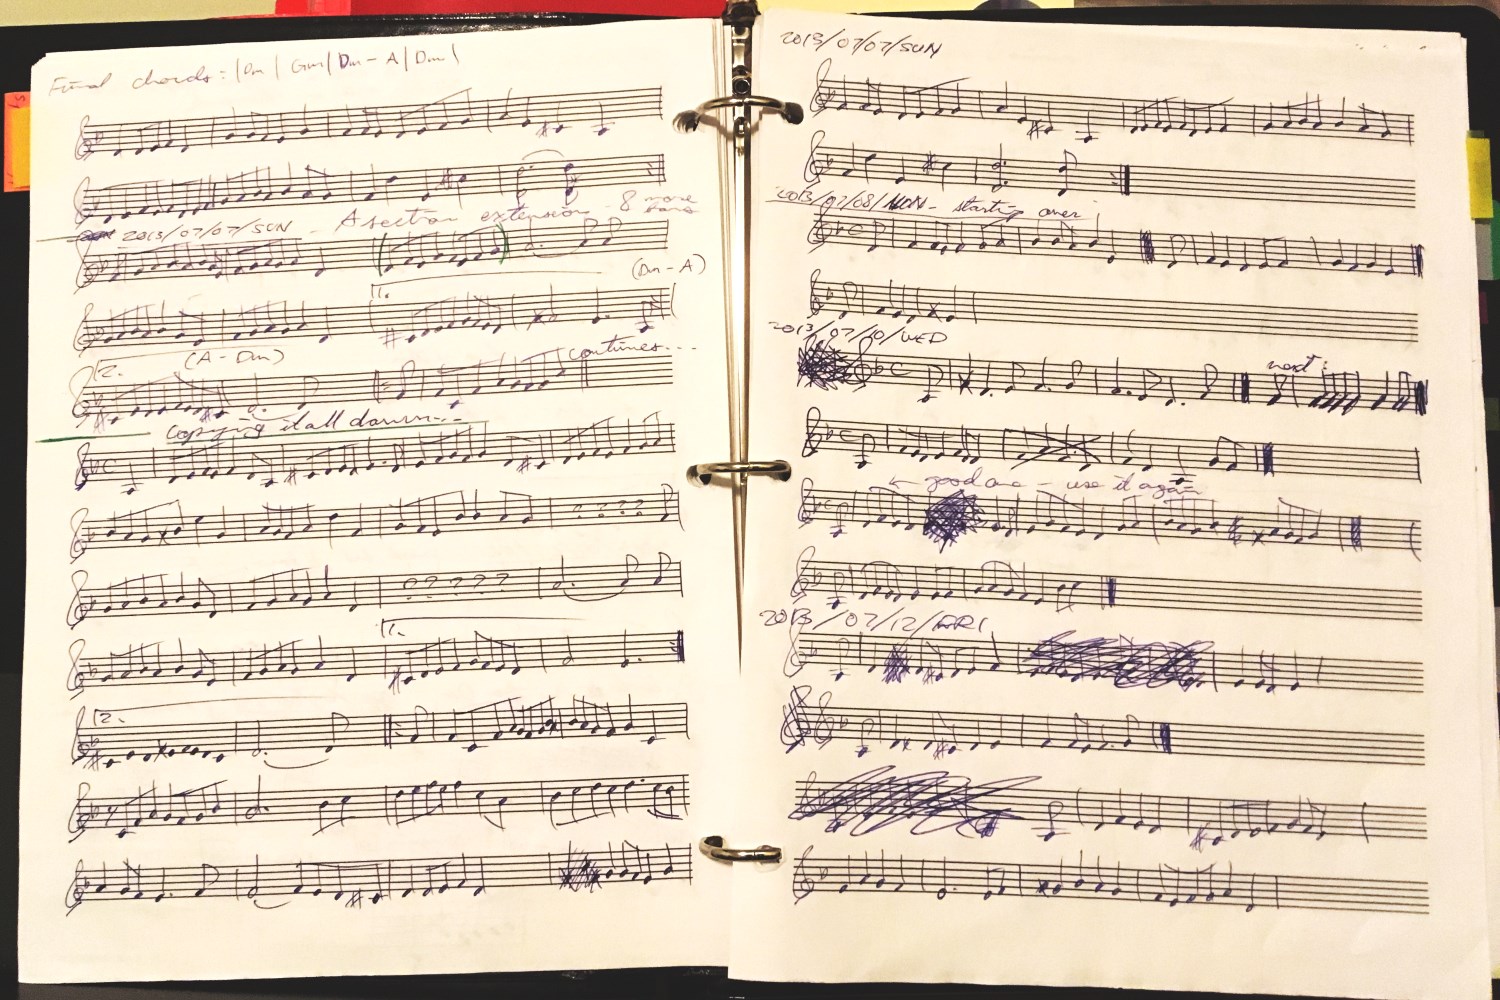 Final chords: | Dm | Gm | Dm - A | Dm |
2013/07/07/SUN - A section extension - 8 more bars
1. (Dm - A)
2. (A - Dm) continues...
Copying it all down...
? ? ? ?
? ? ? ? ?
1.
2.
2013/07/07/SUN
2013/07/08/MON - starting over
2013/07/10/WED
next:
← good one - use it again
2013/07/12/FRI